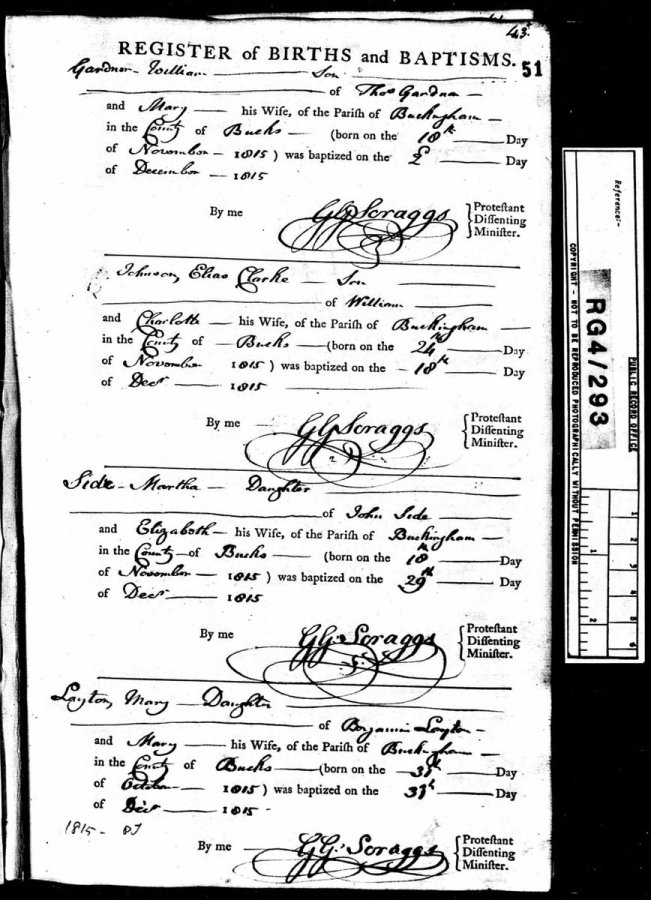 43
REGISTER of BIRTHS and BAPTISMS. 51
Gardner William Son
of Thos Gardner
and Mary his Wife, of the Parish of Buckingham
in the County of Bucks (born on the 18th Day
of November 1815) was baptized on the 2 Day
of December 1815
By me GG Scraggs
Protestant
Dissenting
Minister.
Johnson, Elias Clarke Son
of William
and Charlotte his Wife, of the Parish of Buckingham
in the County of Bucks (born on the 24th Day
of November 1815) was baptized on the 18th Day
of Decr 1815
By me GG Scraggs
Protestant
Dissenting
Minister.
Side Martha Daughter
of John Side
and Elizabeth his Wife, of the Parish of Buckingham
in the County of Bucks (born on the 18th Day
of November 1815) was baptized on the 29th Day
of Decr 1815
By me GG Scraggs
Protestant
Dissenting
Minister.
Layton, Mary Daughter
of Benjamin Layton
and Mary his Wife, of the Parish of Buckingham
in the County of Bucks (born on the 31st Day
of October 1815) was baptized on the 31st Day
of Decr 1815
1815
By me GG Scraggs
Protestant
Dissenting
Minister.
Reference:-
RG4/293
PUBLIC RECORD OFFICE
COPYRIGHT - NOT TO BE REPRODUCED PHOTOGRAPHICALLY WITHOUT PERMISSION
1
2
1
2
3
4
5
6